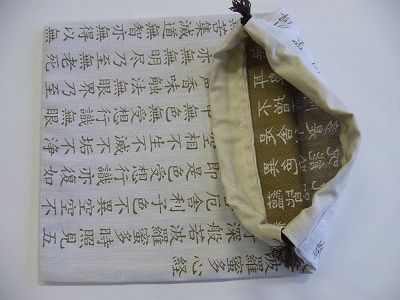 羅蜜多心経
深般若波羅蜜多時照見五
厄舎利子色不異空空不
即是色受想行識亦復如
空相不生不滅不垢不浄
中無色無受想行識無眼
香味触法無眼界乃至
亦無無明尽乃至無老死
無苦集滅道無智亦無得以無
蘊皆
異色
是舎
不増
耳